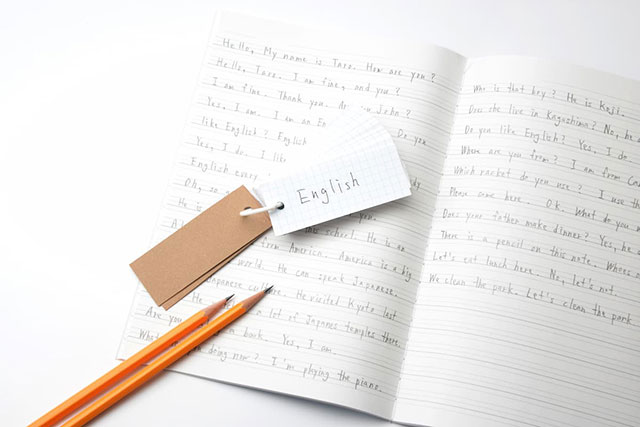 Hello, My name is Taro. How are you?
Hello, Taro. I am fine, and you?
I am fine. Thank you. do you John?
Yes, I am. I am an En Do you
like English? English
Yes, I do. I like
English every
Oh, so
He is you.
this school. He is an
from America. America is a big
world. He can spent Japanese.
Japanese culture. He visited Kyoto last
He a lot of Japanes temples there.
Are you book. Yes, I am.
What doing now? I'm playing the piano.
English
Who is that boy? He is Koji.
Does she live in Kagoshima? No, he
Do you like English? Yes, I do
Where are you from? I am from Can
Which racket do you use? I use th
Please came here. Ok. What do you
Does your father make dinner? Yes, he
There is a pencil on this note. Where
Let's eat lunch here. No, let's not.
We clean the park. Let's clean the park